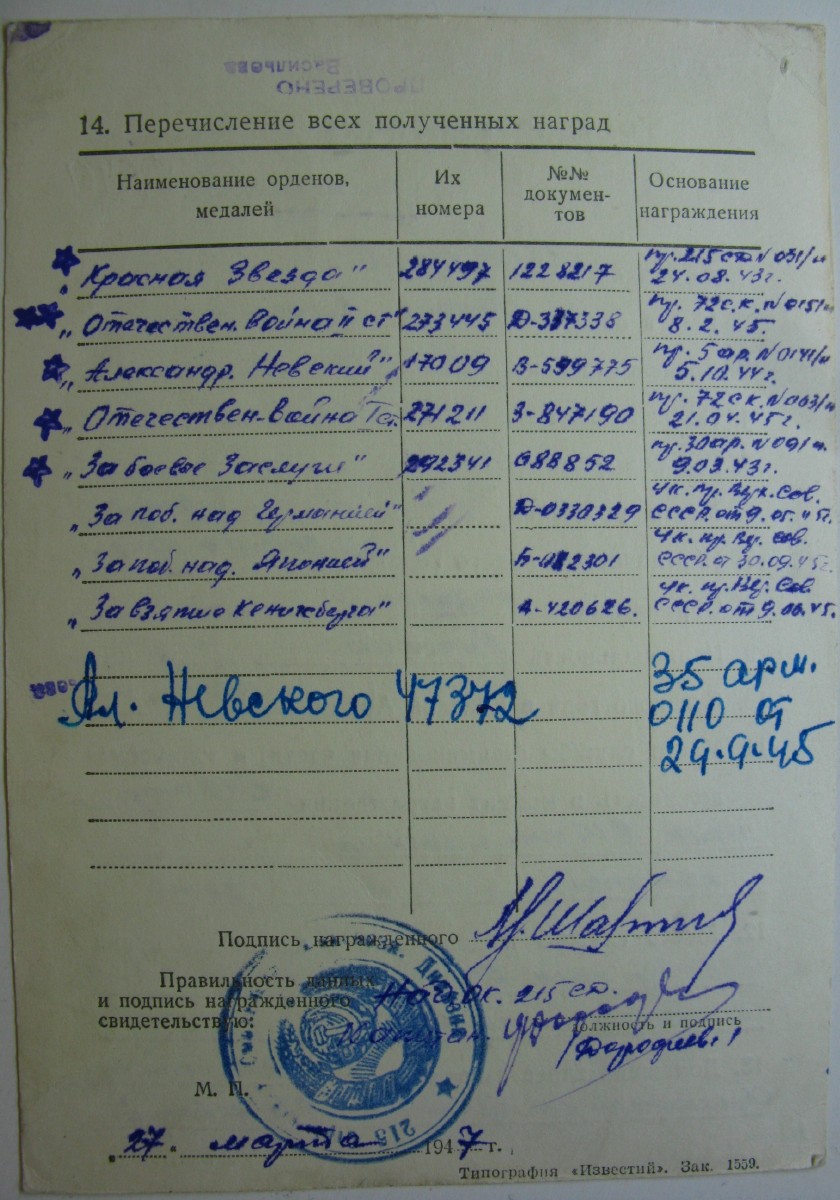 Васильева
ПРОВЕРЕНО
14. Перечисление всех полученных наград
Наименование орденов, медалей
Их номера
№№ докумен-тов
Основание награждения
„Красная Звезда" 284497 1228217 пр. 215 сд. N 031/н 24.08.43г.
„Отечествен. война II ст" 273445 пр. 72 с.к. N 015/н 8.2.45.
„Александр. Невский" 17009 пр. 5 ар. N 0141/н 5.10.44г.
„Отечествен. война I ст. 271211 З-847190 пр. 72 ск. N 003/н 21.04.45г.
„За боевые Заслуги" 292341 пр. 30 ар. N 091/н. 9.03.43г.
„За поб. над Германией" Д-0330329 Ук. пр. Вер. Сов. СССР. от 9.05.45г.
„За поб. над. Японией" Ук. пр. Вер. Сов. СССР. от 30.09.45г.
„За взятие Кенигсберга" А-420626. Ук. пр. Вер. Сов. СССР. от 9.06.45.
Ал. Невского 47372 35 арм.
0110 от
29.9.45
Подпись награжденного
Правильность данных
и подпись награжденного
свидетельствую:
Нач. 215 сд.
Капитан.
должность и подпись
М. П.
„27" марта 1947 г.
Типография «Известий». Зак. 1559.